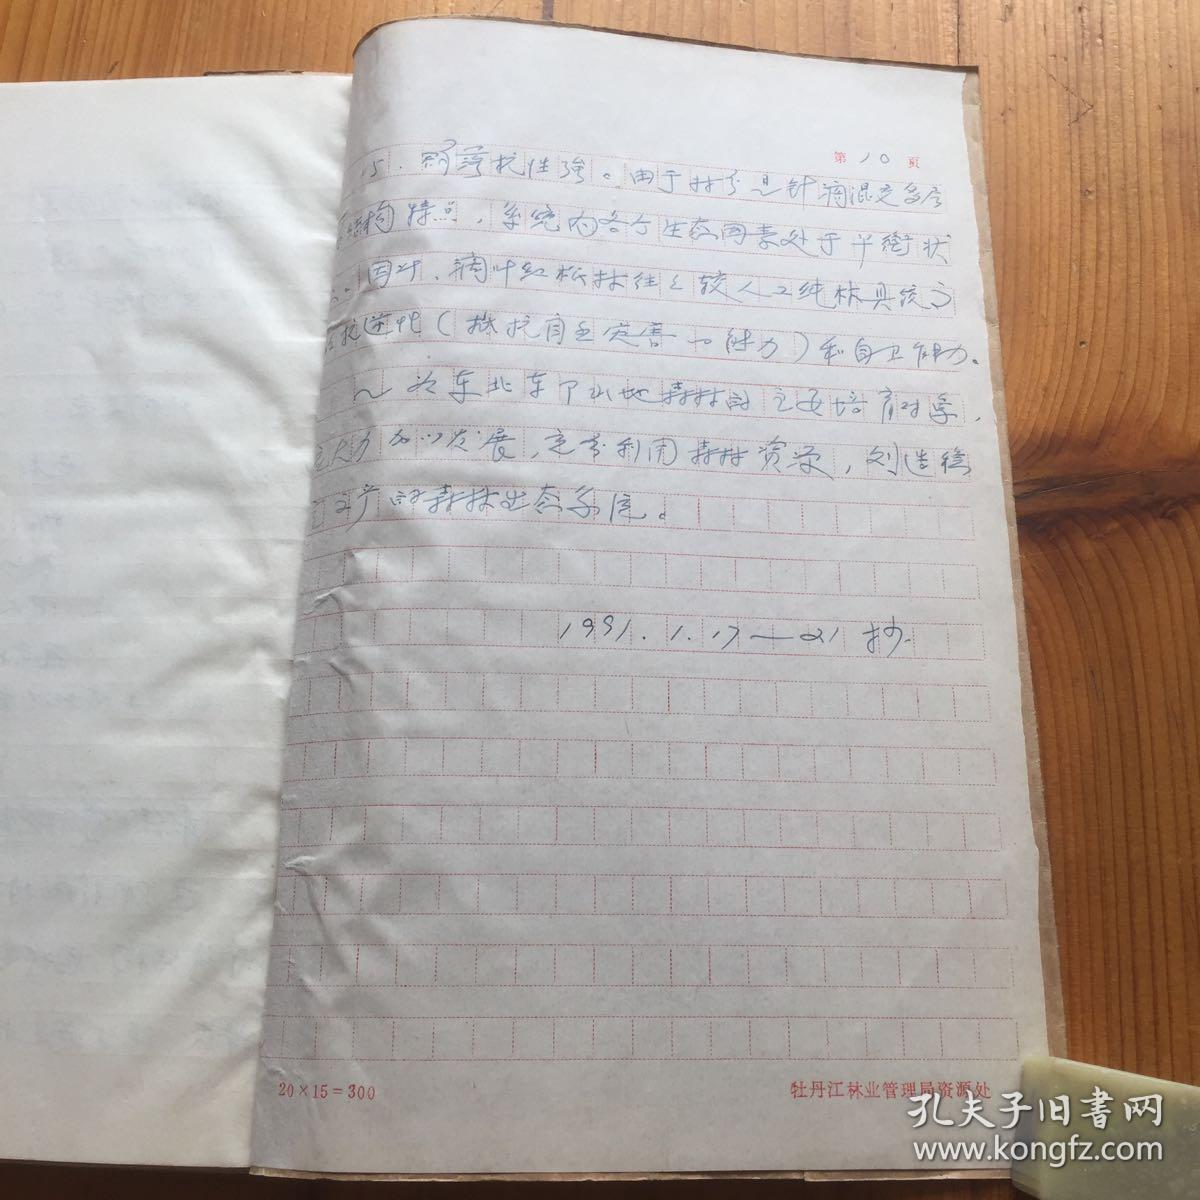 第10页
15. 抗性强。由于林分是针阔混交多层
结构特点，系统内各个生态因素处于平衡状
因此，阔叶红松林往往较人工纯林具较高
抗逆性（抵抗自然灾害的能力）和自卫能力。
为东北东部山地森林的主要培育对象，
大力加以发展，充分利用森林资源，创造稳
产的森林生态系统。
1991.1.17—21 抄.
20×15=300
牡丹江林业管理局资源处
孔夫子旧书网
www.kongfz.com